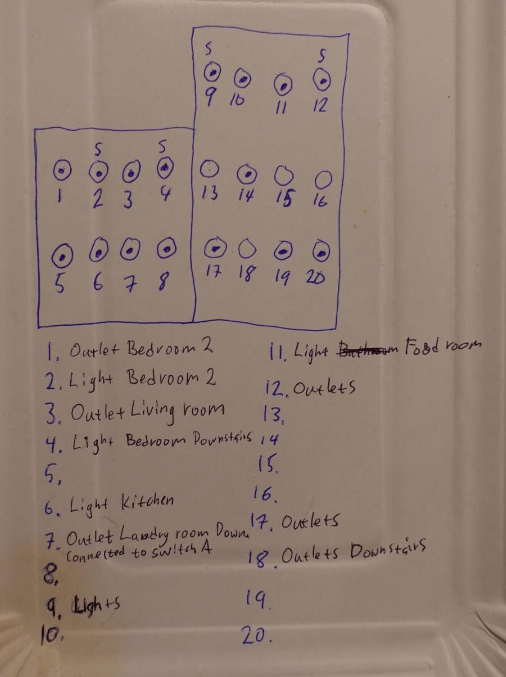 S S
9 10 11 12
S S
1 2 3 4 13 14 15 16
5 6 7 8 17 18 19 20
1. Outlet Bedroom 2
2. Light Bedroom 2
3. Outlet Living room
4. Light Bedroom Downstairs
5.
6. Light Kitchen
7. Outlet Landry room Down.
Connected to switch A
8.
9. Lights
10.
11. Light Food room
12. Outlets
13.
14
15.
16.
17. Outlets
18. Outlets Downstairs
19.
20.